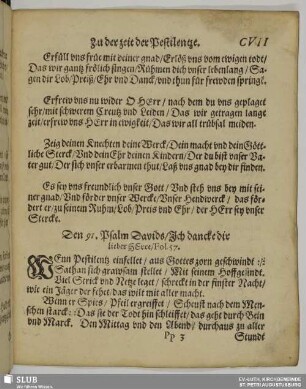 Zu der zeit der Pestilentze. CVII
Erfüll vns früe mit deiner gnad/Erlöß vns vom ewigen todt/
Das wir gantz frölich singen/Rühmen dich vnser lebenlang/Sa-
gen dir Lob/Preiß/Ehr vnd Danck/vnd thun für frewden springē.
Erfrew vns nu wider O HErr/nach dem du vns geplaget
sehr/mit schwerem Creutz vnd Leiden/Das wir getragen lange
zeit/erfrew vns HErr in ewigkeit/Das wir all trübsal meiden.
Zeig deinen Knechten deine Werck/Dein macht vnd dein Gött-
liche Sterck/Vnd dein Ehr deinen Kindern/Der du bist vnser Va-
ter gut/Der sich vnser erbarmen thut/Laß vns gnad bey dir finden.
Es sey vns freundlich vnser Gott/Vnd steh vns bey mit sei-
ner gnad/Vnd förder vnser Wercke/Vnser Hendwerck/das för-
dert er/zu seinem Ruhm/Lob/Preis vnd Ehr/der HErr sey vnser
Stercke.
Den 91. Psalm Dauids/Ich dancke dir
lieber HErre/Fol.57.
WEnn Pestilentz einfellet/aus Gottes zorn geschwind :/:
Sathan sich grawsam stellet/Mit seinem Hoffgesind.
Viel Strick vnd Netze leget/schreckt in der finster Nacht/
wie ein Jäger der fehet/das wilt mit aller macht.
Wenn er Spies/Pfeil ergreiffet/Scheust nach dem Men-
schen starck :/: Das ist der Todt hin schleiffet/das geht durch Bein
vnd Marck. Den Mittag vnd den Abend/durchaus zu aller
Pp 3 Stundt
SLUB
Wir führen Wissen.
EV.-LUTH. KIRCHGEMEINDE
ST. PETRI AUGUSTUSBURG